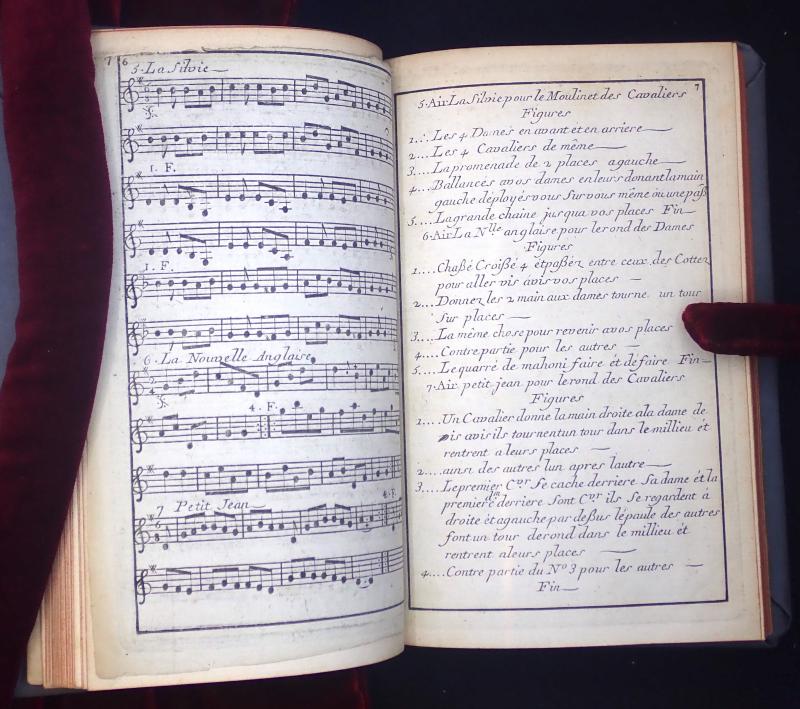 7 6
5. La Silvie
1. F.
1. F.
6. La Nouvelle Anglaise
4. F.
7 Petit Jean
4. F.
7
5. Air La Silvie pour le Moulinet des Cavaliers
Figures
1... Les 4 Dames en avant et en arriere
2... Les 4 Cavaliers de même
3.... La promenade de 2 places agauche
4... Ballancés avos dames en leurs donant la main
gauche déployés vous Sur vous même ou une paß
5.... La grande chaine jusqua vos places Fin
6. Air La Nlle anglaise pour le rond des Dames
Figures
1.... Chaßé Croißé 4 ét paßéz entre ceux des Cottez
pour aller vis avis vos places
2... Donnez les 2 main aux dames tourne un tour
Sur places
3.... La même chose pour revenir avos places
4.... Contre partie pour les autres
5.... Le quarré de mahoni faire ét défaire Fin
7. Air petit jean pour le rond des Cavaliers
Figures
1.... Un Cavalier donne la main droite ala dame de
vis avis ils tournent un tour dans le millieu ét
rentrent a leurs places
2.... ainsi des autres lun apres lautre
3.... Le premier Cer Se cache derriere Sa dame ét la
premiere derriere Sont Cer ils Se regardent á
droite ét agauche par deßus lépaule des autres
font un tour de rond dans le millieu ét
rentrent aleurs places
4.... Contre partie du No 3 pour les autres
Fin